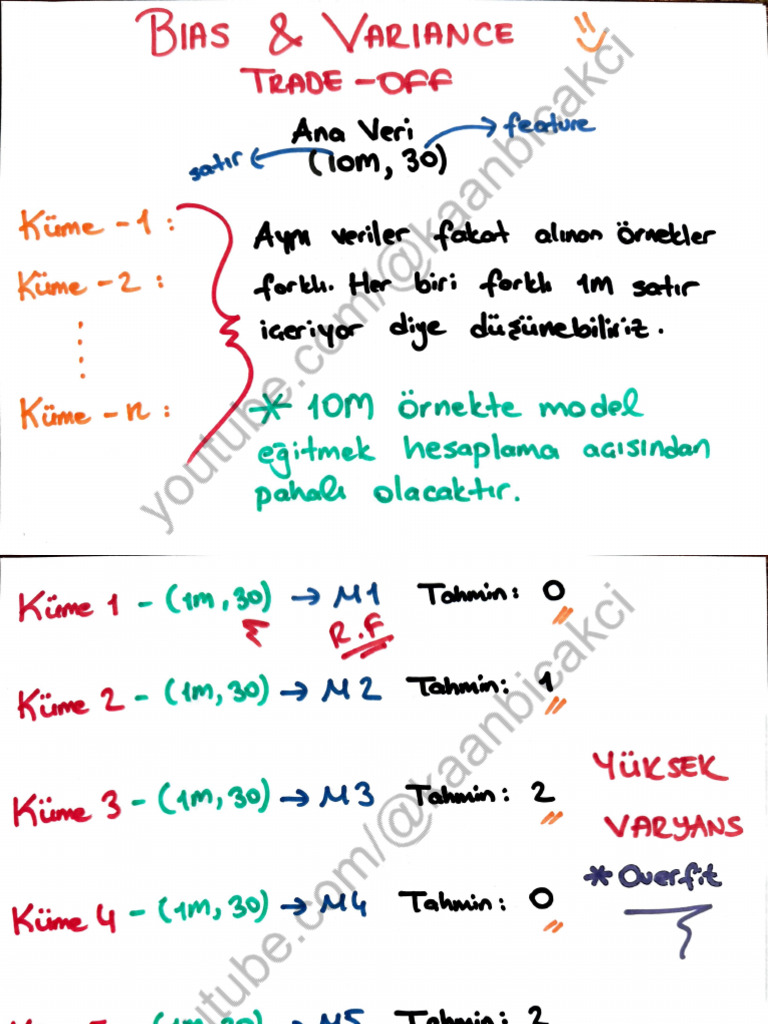 BIAS & VARIANCE
TRADE-OFF
Ana Veri
feature
satır
(10m, 30)
Küme -1 :
Küme -2 :
Küme -n :
Aynı veriler fakat alınan örnekler
farklı. Her biri farklı 1m satır
içeriyor diye düşünebiliriz.
* 10M örnekte model
eğitmek hesaplama açısından
pahalı olacaktır.
youtube.com/@kaanbicakci
Küme 1 - (1m, 30) → M1 Tahmin: 0
R.F
Küme 2 - (1m, 30) → M2 Tahmin: 1
Küme 3 - (1m, 30) → M3 Tahmin: 2
YÜKSEK
VARYANS
* Overfit
Küme 4 - (1m, 30) → M4 Tahmin: 0
youtube.com/@kaanbicakci
M5 Tahmin: 2